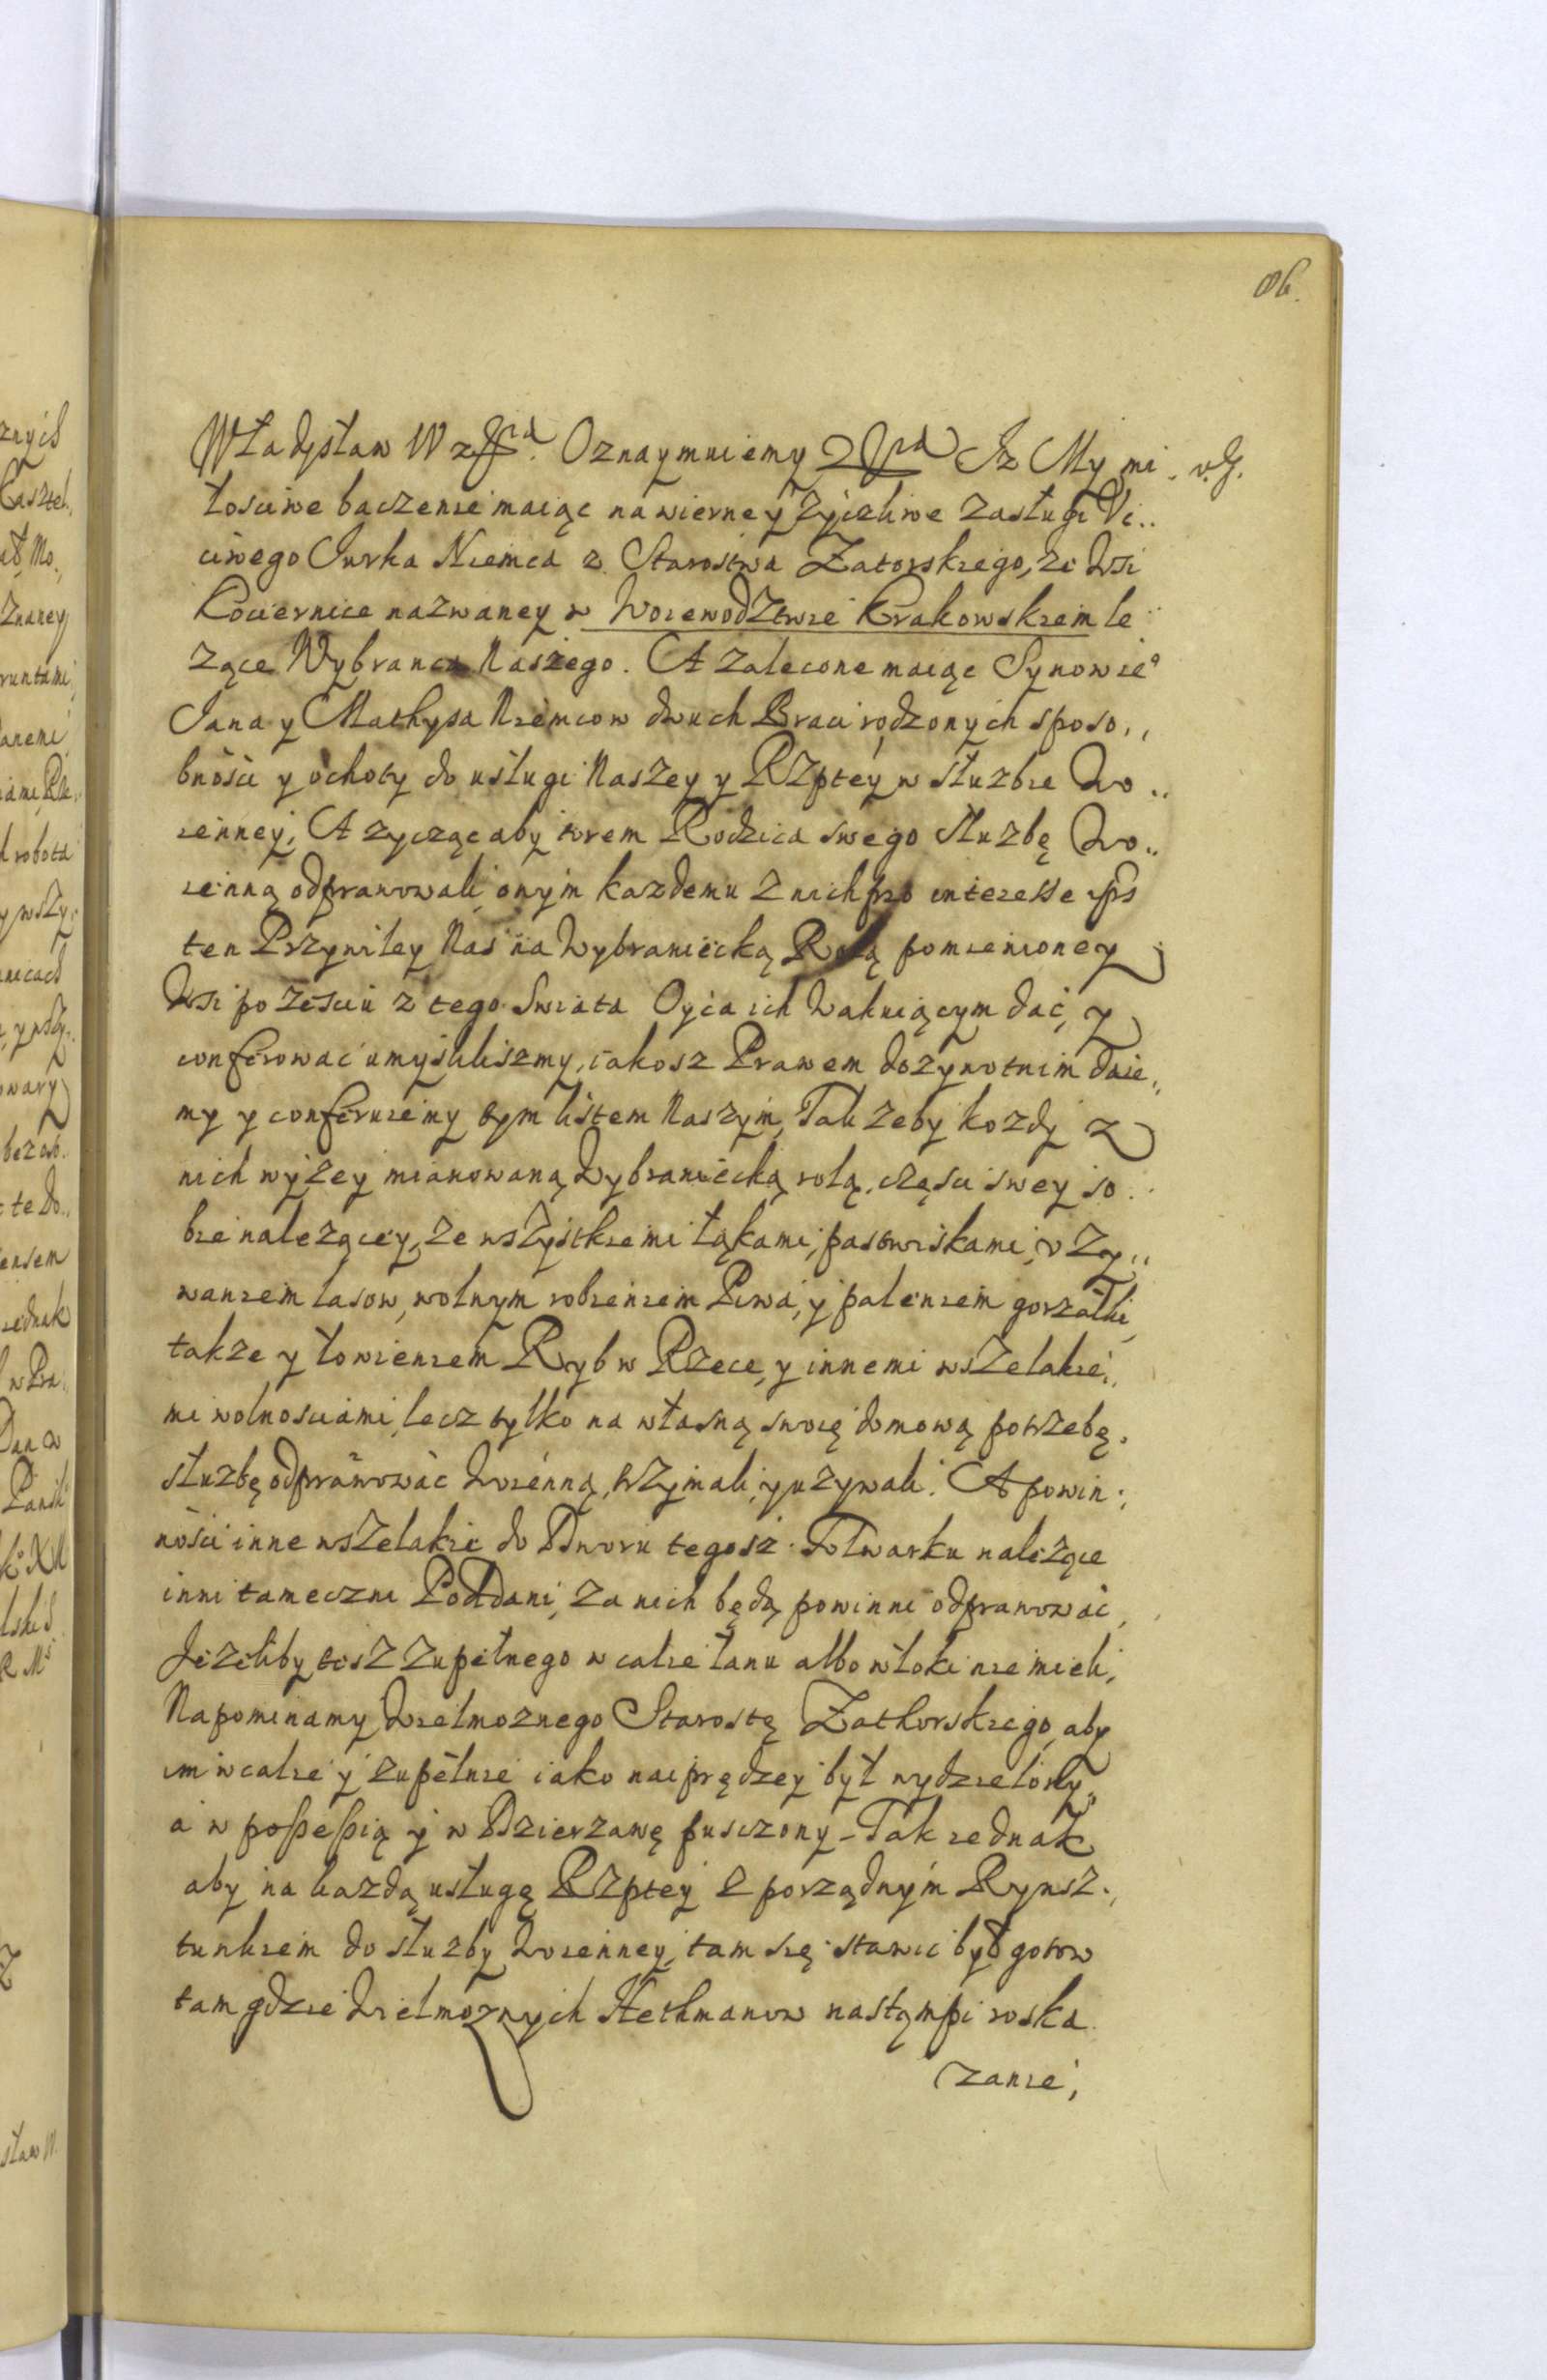 86.
Władysław IV z Oznaymuiemy Iz My mi.
łosciwe baczenie maiąc na wierne y zyczliwe zasługi Vc..
ciwego Iurka Niemca z Starostwa Zatorskiego, ze Wsi
Kociernice nazwaney w Woiewodztwie Krakowskiem le..
zące Wybranca Naszego. A zalecone maiąc Synowie°
Iana y Mathysa Niemcow dwuch Braci rodzonych sposo,,
bnosci y ochoty do usługi Naszey y RZptey w służbie Wo..
ienney, A zycząc aby torem Rodzica swego Służbę Wo..
ienną odprawowali, onym kazdemu z nich pro interesse
ten Przywiley Nas na Wybraniecką Rolą pomienioney
Wsi po zesciu z tego Swiata Oyca ich Wakuiącym dać, y
conferować umysliliszmy, iakosz Prawem dozywotnim daie,,
my y conferuiemy tym listem Naszym, Tak żeby kozdy z
nich wyżey mianowaną Wybraniecką rolą, częsci swey so..
bie nalezącey, ze wszystkiemi łąkami, pastwiskami, vzy,,
waniem lasow, wolnym robieniem Piwa, y paleniem gorzałki,
takze y łowieniem Ryb w Rzece, y innemi wszelakie,,
mi wolnosciami, lecz tylko na własną swoię domową potrzebę,
służbę odprawowac Woienną, trzymali, y uzywali. A powin.,
nosci inne wszelakie do Dworu tegosz Folwarku należące
inni tameczni Poddani, za nich będą powinni odprawować,
Jeżeliby tesz zupełnego w calie łanu albo włoki nie mieli,
Napominamy Wielmoznego Starostę Zathorskiego, aby
im w calie y zupełnie iako naiprędzey był wydzielony,
a w possessią y w Dzierzawę pusczony - Tak iednak
aby na kazdą usługę RZptey z porządnym Rynsz.,
tunkiem do służby Woienney, tam się stawić był gotow
tam gdzie Wielmoznych Hethmanow nastąmpi roska
zanie,